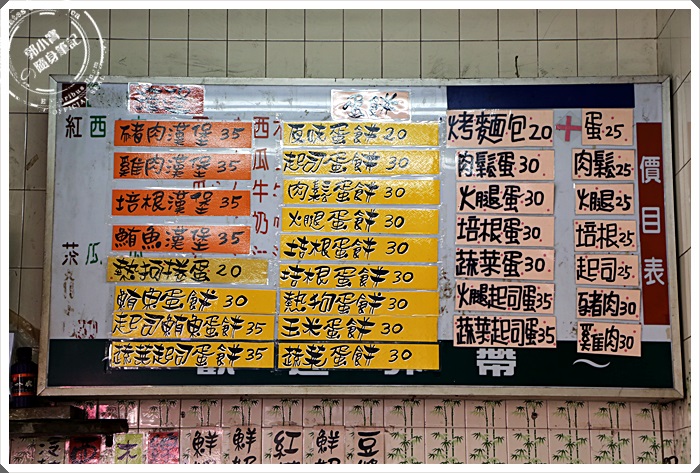 郭小寶
隨身筆記
蛋餅
豬肉漢堡 35
雞肉漢堡 35
培根漢堡 35
鮪魚漢堡 35
熱狗捲蛋 20
鮪魚蛋餅 30
起司鮪魚蛋餅 35
蔬菜起司蛋餅 35
原味蛋餅 20
起司蛋餅 30
肉鬆蛋餅 30
火腿蛋餅 30
培根蛋餅 30
培根蛋餅 30
熱狗蛋餅 30
玉米蛋餅 30
蔬菜蛋餅 30
烤麵包 20 + 蛋 25
肉鬆蛋 30
火腿蛋 30
培根蛋 30
蔬菜蛋 30
火腿起司蛋 35
蔬菜起司蛋 35
肉鬆 25
火腿 25
培根 25
起司 25
豬肉 30
雞肉 30
價目表
紅
西
茶
瓜
西
瓜
牛
奶
帶
~
鮮
鮮
紅
鮮
豆